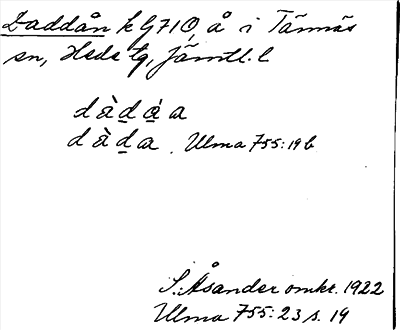 Daddån k G710, å i Tännäs
sn, Hede tg, Jämtl. l
dàḏa̱a
dàḏa. Ulma 755:19b
S. Åsander omkr. 1922
Ulma 755:23 s. 19